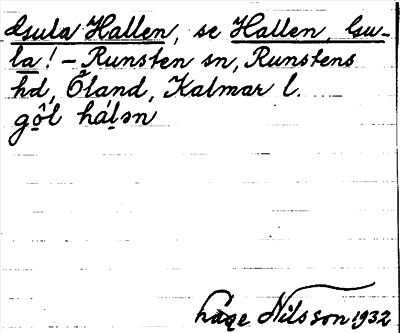 Gula Hallen, se Hallen, Gu-
la! – Runsten sn, Runstens
hd, Öland, Kalmar l.
gôl hálən
Åage Nilsson 1932